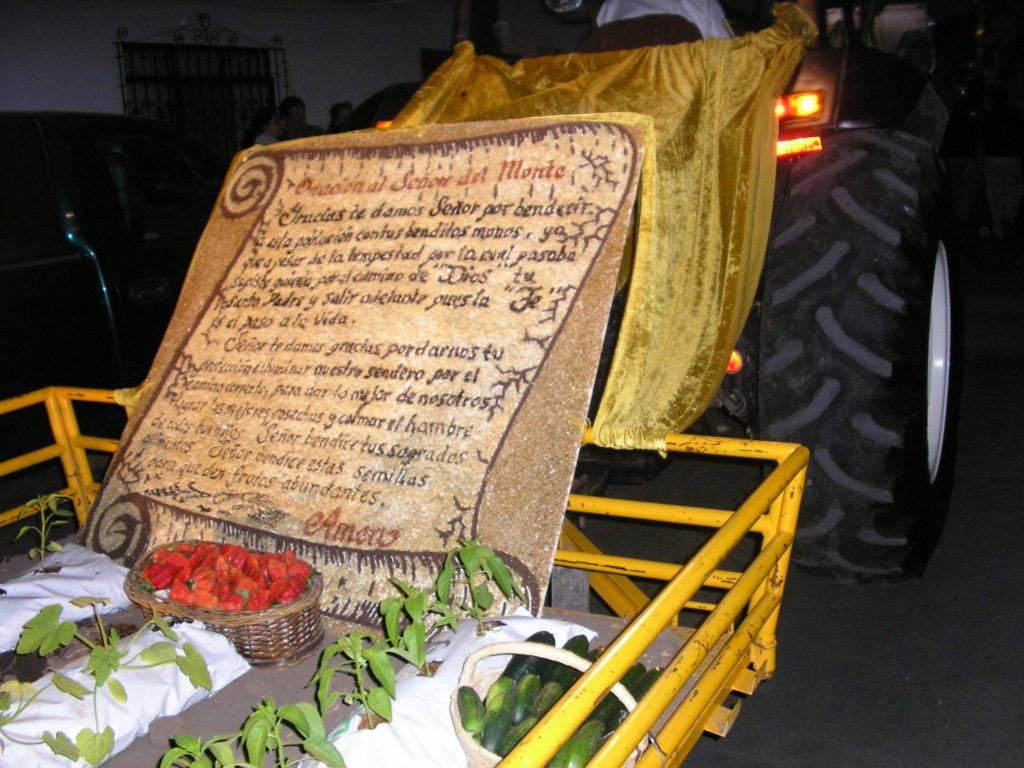 Oracion al Señor del Monte
Gracias te damos Señor por bendecir
a esta población con tus benditos monos, ya
que a pesar de la tempestad por la cual pasaba
supiste guiarla por el camino de "Dios" tu
Santo Padre y salir adelante pues la "Fe"
es el paso a la vida.
Señor te damos gracias por darnos tu
protección e iluminar nuestro sendero por el
camino correcto, para dar lo mejor de nosotros,
lograr las mejores cosechas y calmar el hambre
de todos tus hijos. Señor bendice tus sagrados
alimentos. Señor bendice estas semillas
para que den frutos abundantes.
Amen